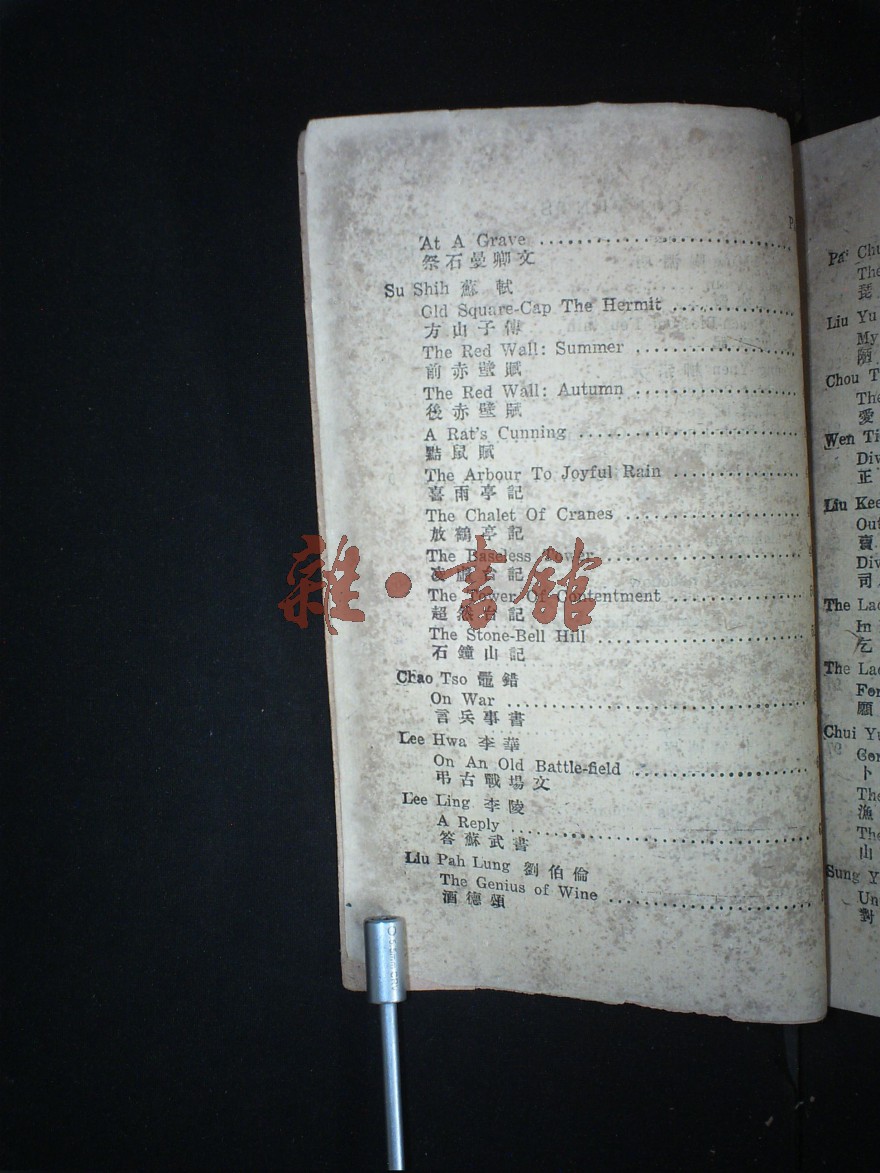 At A Grave
祭石曼卿文
Su Shih 蘇軾
Old Square-Cap The Hermit
方山子傳
The Red Wall: Summer
前赤壁賦
The Red Wall: Autumn
後赤壁賦
A Rat's Cunning
黠鼠賦
The Arbour To Joyful Rain
喜雨亭記
The Chalet Of Cranes
放鶴亭記
The Baseless Tower
凌虛台記
The Tower Of Contentment
超然台記
The Stone-Bell Hill
石鐘山記
Chao Tso 鼂錯
On War
言兵事書
Lee Hwa 李華
On An Old Battle-field
弔古戰場文
Lee Ling 李陵
A Reply
答蘇武書
Liu Pah Lung 劉伯倫
The Genius of Wine
酒德頌
雜·書館
Liu Yu
My
陋
Chou T
The
愛
Wen Ti
Div
正
Liu Kee
Out
賣
Div
司
The Lad
In
乞
The Lad
For
願
Chui Yu
卜
The
漁
The
山
Sung Y
Un
對